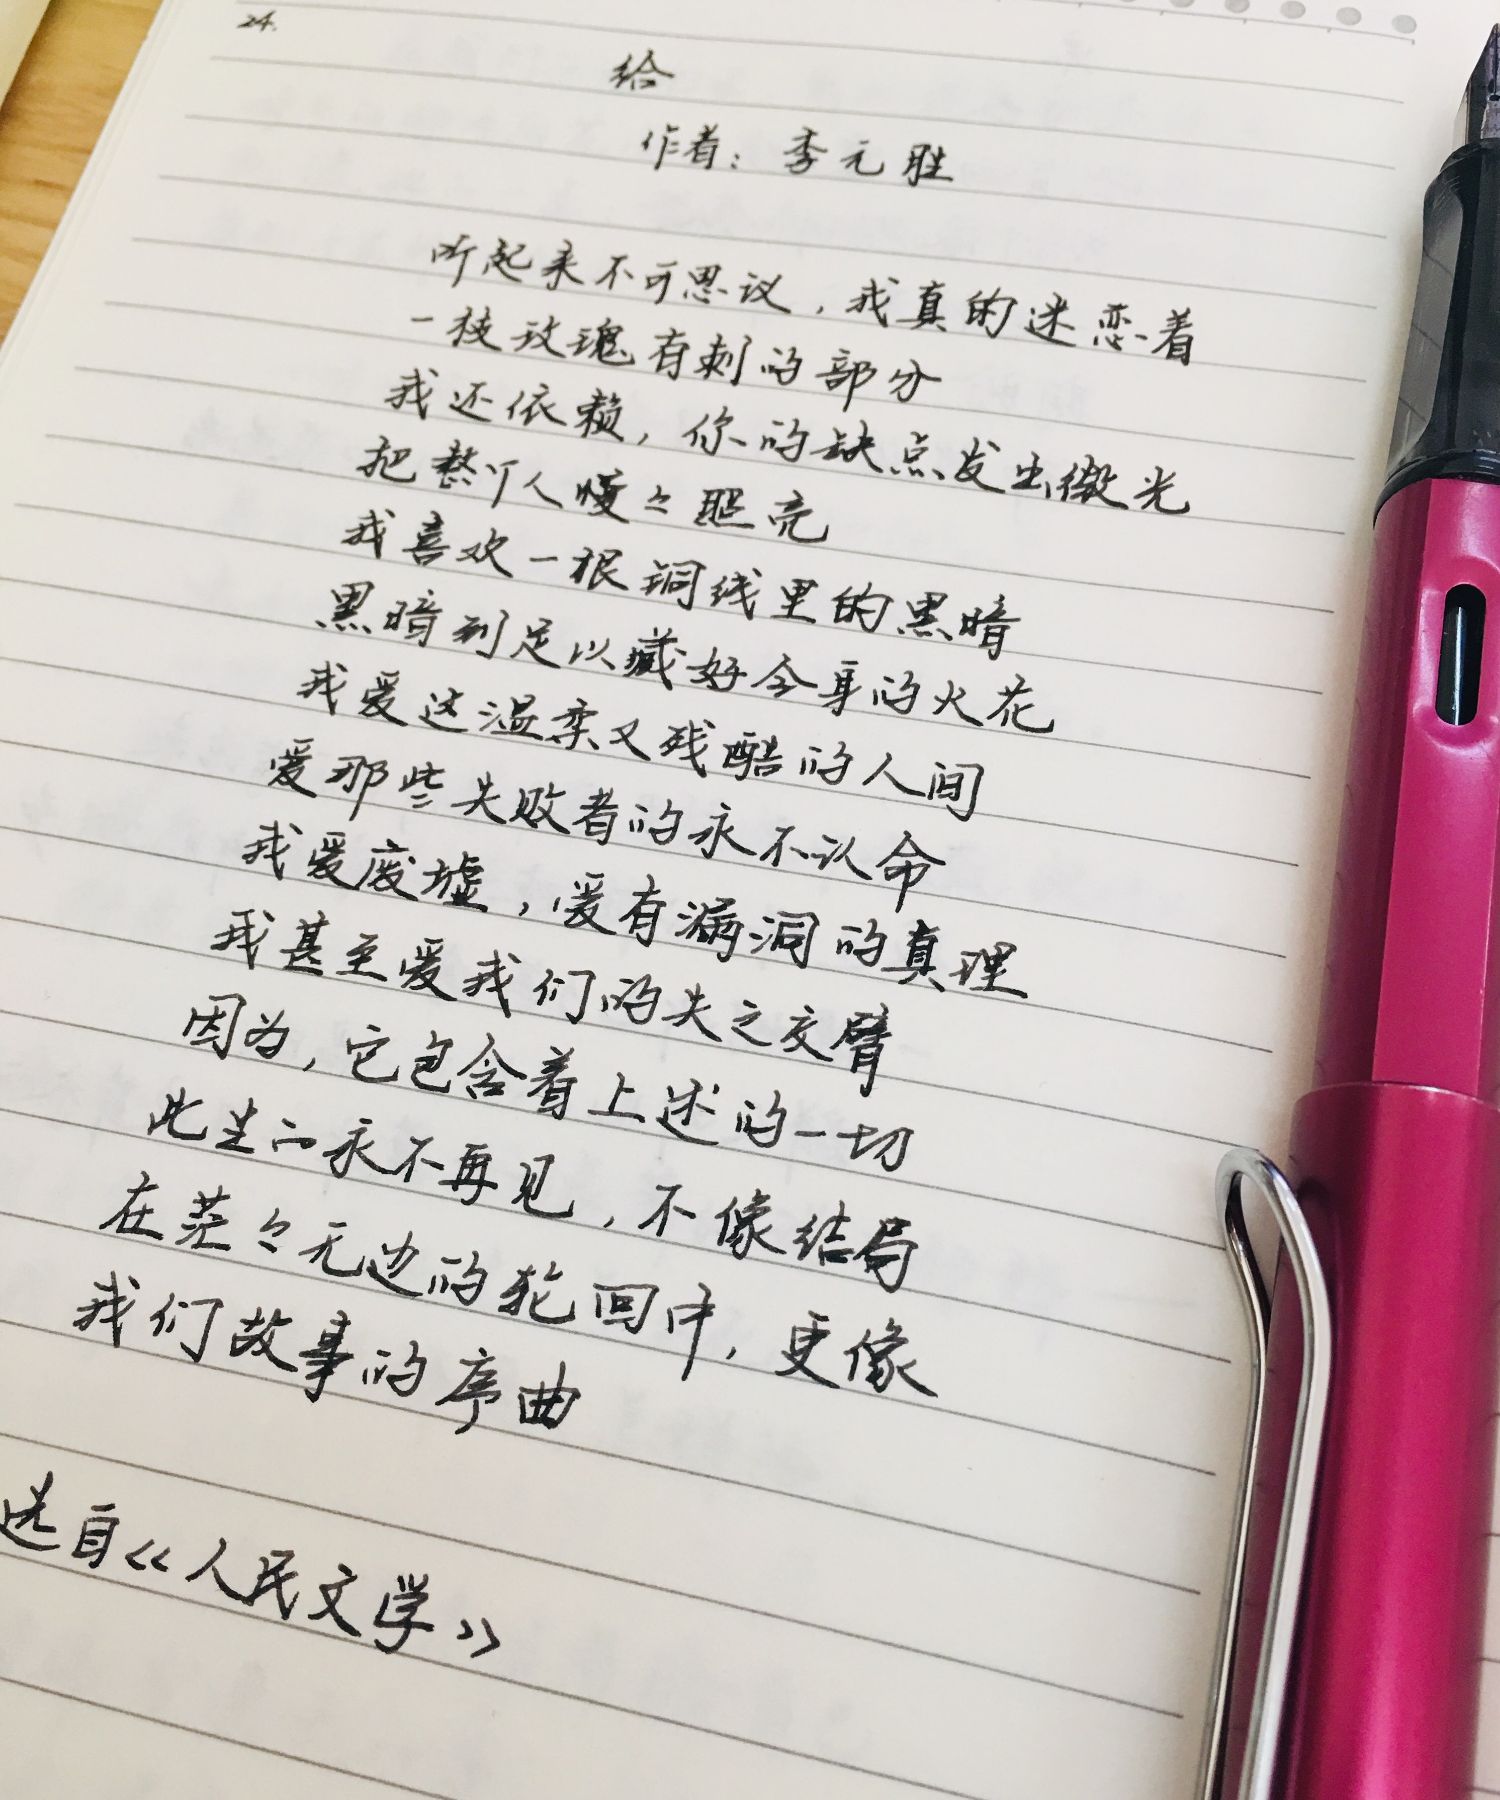 24.
给
作者：李元胜
听起来不可思议，我真的迷恋着
一枝玫瑰有刺的部分
我还依赖，你的缺点发出微光
把整个人慢々照亮
我喜欢一根铜线里的黑暗
黑暗到足以藏好全身的火花
我爱这温柔又残酷的人间
爱那些失败者的永不认命
我爱废墟，爱有漏洞的真理
我甚至爱我们的失之交臂
因为，它包含着上述的一切
此生的永不再见，不像结局
在茫々无边的轮回中，更像
我们故事的序曲
选自《人民文学》